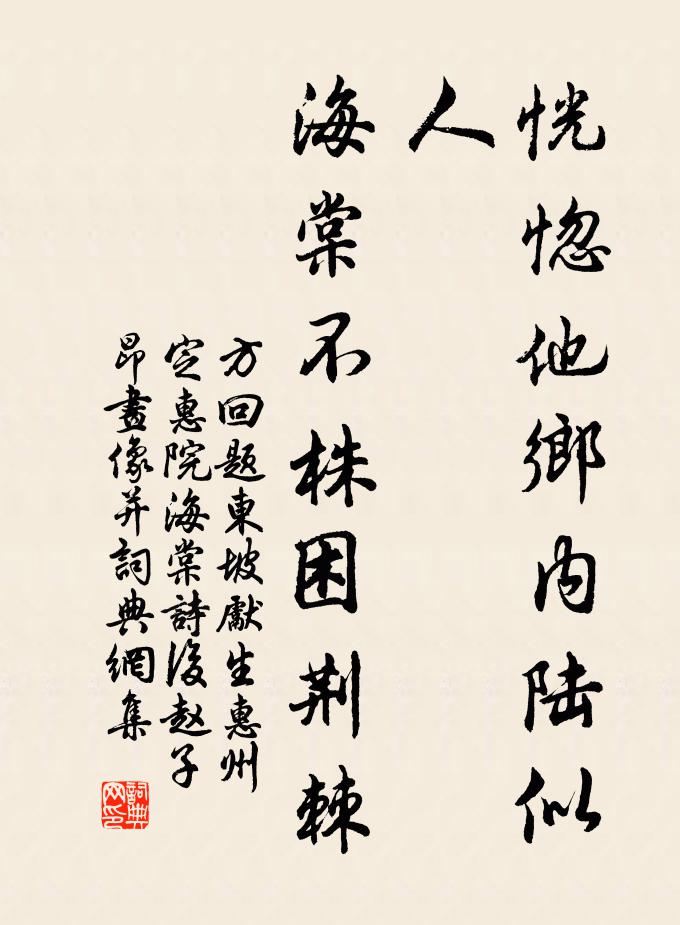 恍惚他鄉内陆似
人
海棠不株困荆棘
方回题東坡獻生惠州
定惠院海棠詩後赵子
昂畫像并詞典網集
詞典
网印